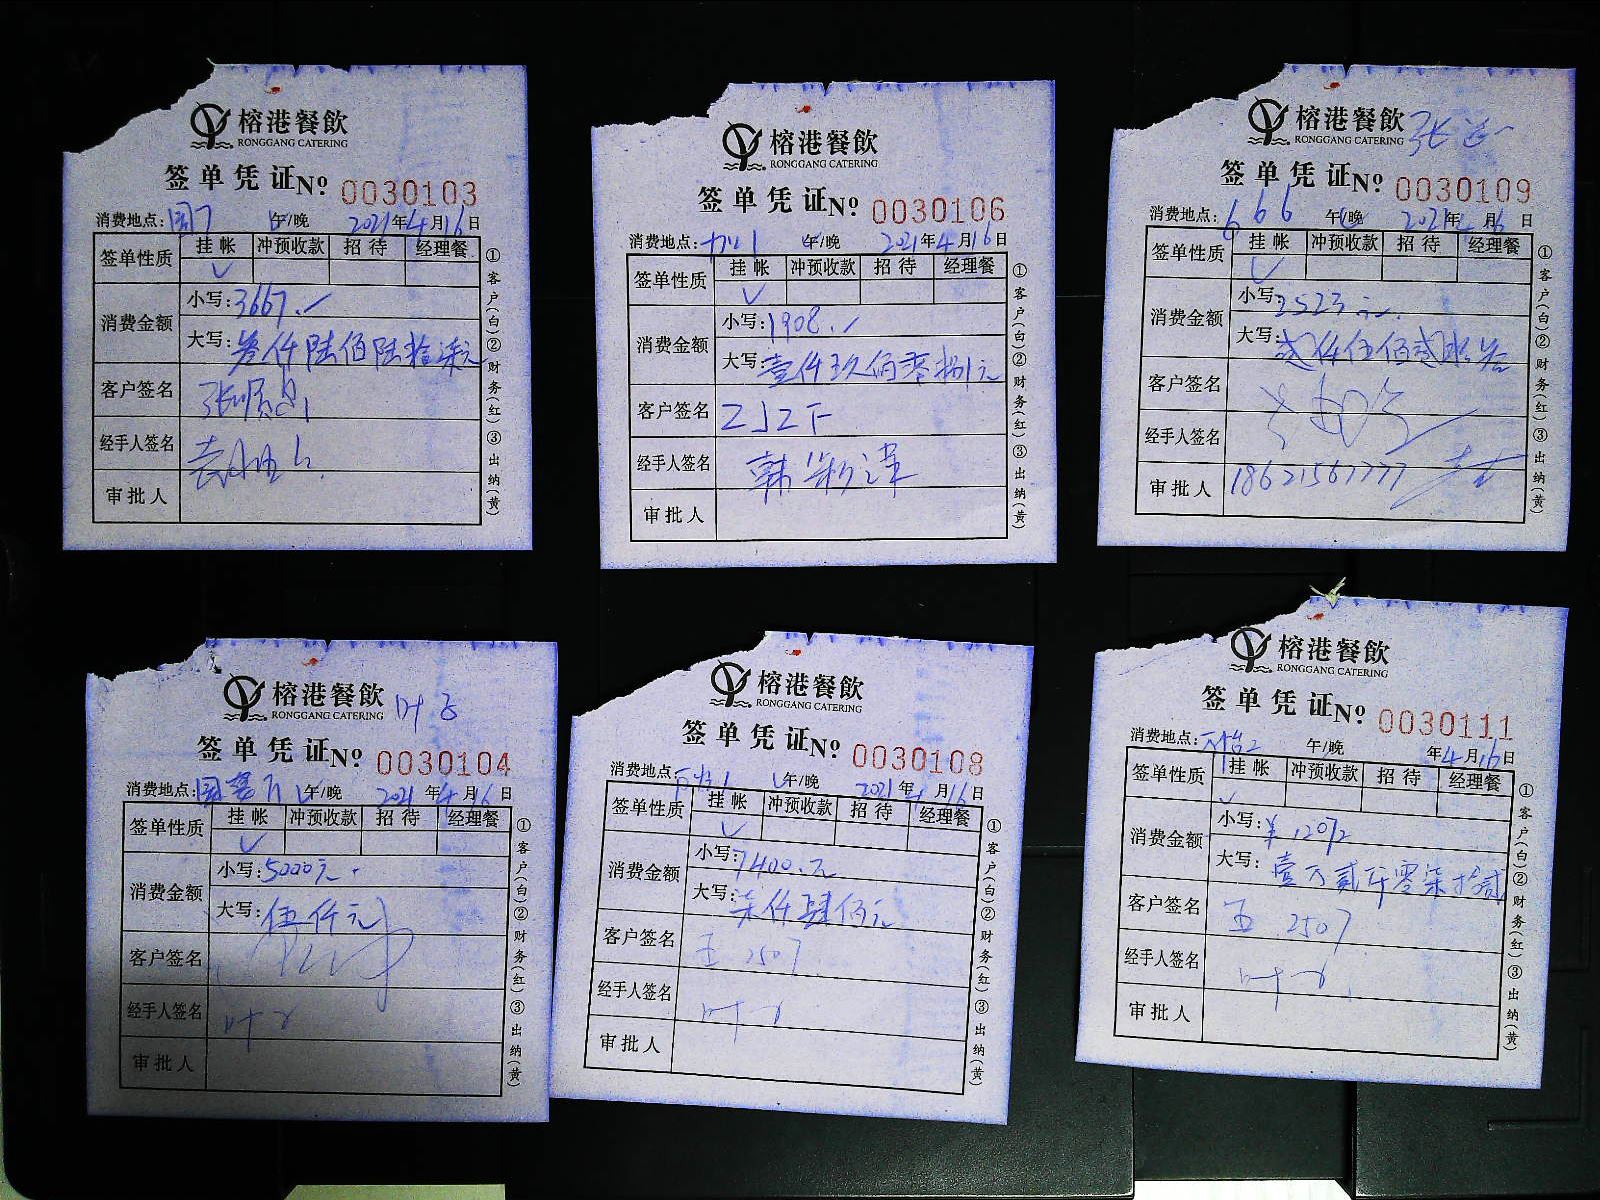 榕港餐飲
RONGGANG CATERING
签单凭证 № 0030103
消费地点: 午/晚 2021年4月16日
签单性质 挂帐 冲预收款 招待 经理餐
✓
消费金额 小写:3667.
大写:叁仟陆佰陆拾柒元
客户签名
经手人签名
审批人
①客户(白)②财务(红)③出纳(黄)
榕港餐飲
RONGGANG CATERING
签单凭证 № 0030106
消费地点: 午/晚 2021年4月16日
签单性质 挂帐 冲预收款 招待 经理餐
✓
消费金额 小写:1908.
大写:壹仟玖佰零捌元
客户签名
经手人签名
审批人
①客户(白)②财务(红)③出纳(黄)
榕港餐飲
RONGGANG CATERING
签单凭证 № 0030109
消费地点:666 午/晚 2021年4月16日
签单性质 挂帐 冲预收款 招待 经理餐
✓
消费金额 小写:2523元
大写:贰仟伍佰贰拾叁
客户签名
经手人签名
审批人 18621567777
①客户(白)②财务(红)③出纳(黄)
榕港餐飲
RONGGANG CATERING
签单凭证 № 0030104
消费地点: 午/晚 2021年4月16日
签单性质 挂帐 冲预收款 招待 经理餐
✓
消费金额 小写:5000元
大写:伍仟元
客户签名
经手人签名
审批人
①客户(白)②财务(红)③出纳(黄)
榕港餐飲
RONGGANG CATERING
签单凭证 № 0030108
消费地点: 午/晚 2021年4月16日
签单性质 挂帐 冲预收款 招待 经理餐
✓
消费金额 小写:7400.元
大写:柒仟肆佰元
客户签名 2507
经手人签名
审批人
①客户(白)②财务(红)③出纳(黄)
榕港餐飲
RONGGANG CATERING
签单凭证 № 0030111
消费地点: 午/晚 年4月16日
签单性质 挂帐 冲预收款 招待 经理餐
✓
消费金额 小写:¥12072
大写:壹万贰仟零柒拾贰
客户签名 2507
经手人签名
审批人
①客户(白)②财务(红)③出纳(黄)